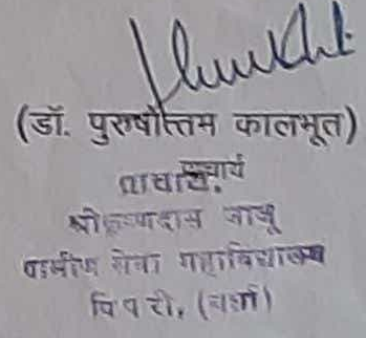 (डॉ. पुरुषोत्तम कालभूत)
प्राचार्य
प्राचार्य.
श्रीकृष्णदास जाजू
ग्रामीण सेवा महाविद्यालय
पिपरी, (वर्धा)